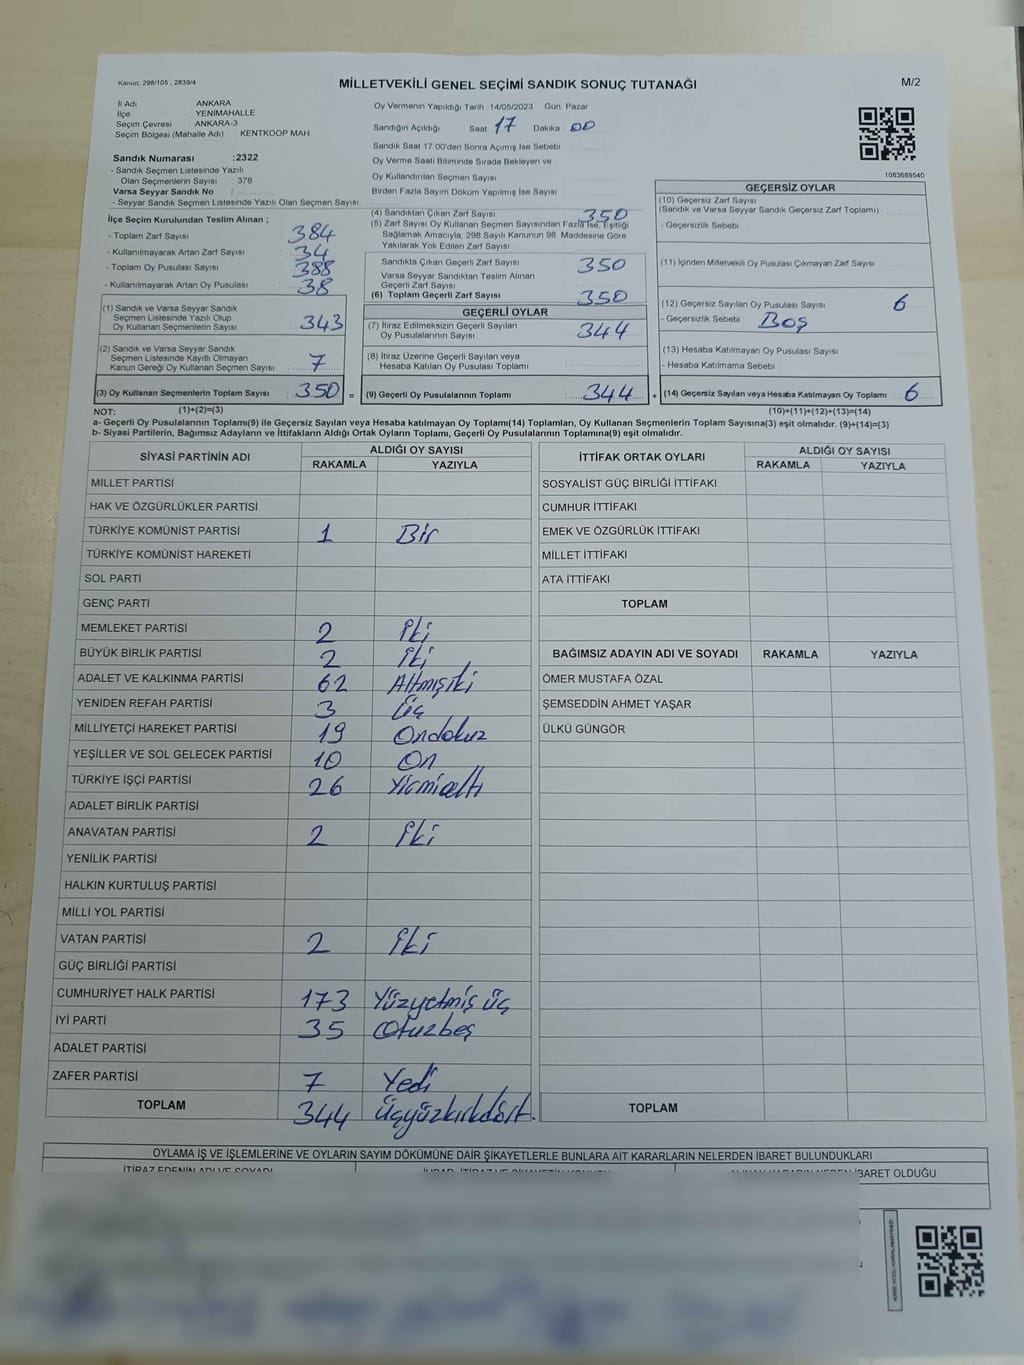 Kanun: 298/105 , 2839/4
MİLLETVEKİLİ GENEL SEÇİMİ SANDIK SONUÇ TUTANAĞI
M/2
İl Adı ANKARA
İlçe YENİMAHALLE
Seçim Çevresi ANKARA-3
Seçim Bölgesi (Mahalle Adı) : KENTKOOP MAH.
Sandık Numarası :2322
- Sandık Seçmen Listesinde Yazılı
Olan Seçmenlerin Sayısı : 378
Varsa Seyyar Sandık No :
- Seyyar Sandık Seçmen Listesinde Yazılı Olan Seçmen Sayısı
Oy Vermenin Yapıldığı Tarih 14/05/2023 Gün: Pazar
Sandığın Açıldığı Saat 17 Dakika 00
Sandık Saat 17:00'den Sonra Açımış İse Sebebi
Oy Verme Saati Bitiminde Sırada Bekleyen ve
Oy Kullandırılan Seçmen Sayısı
Birden Fazla Sayım Döküm Yapılmış İse Sayısı
1083689540
İlçe Seçim Kurulundan Teslim Alınan ;
- Toplam Zarf Sayısı 384
- Kullanılmayarak Artan Zarf Sayısı 34
- Toplam Oy Pusulası Sayısı 388
- Kullanılmayarak Artan Oy Pusulası 38
(1) Sandık ve Varsa Seyyar Sandık
Seçmen Listesinde Yazılı Olup
Oy Kullanan Seçmenlerin Sayısı 343
(2) Sandık ve Varsa Seyyar Sandık
Seçmen Listesinde Kayıtlı Olmayan
Kanun Gereği Oy Kullanan Seçmen Sayısı 7
(3) Oy Kullanan Seçmenlerin Toplam Sayısı : 350 =
(1)+(2)=(3)
(4) Sandıktan Çıkan Zarf Sayısı 350
(5) Zarf Sayısı Oy Kullanan Seçmen Sayısından Fazla İse, Eşitliği
Sağlamak Amacıyla, 298 Sayılı Kanunun 98. Maddesine Göre
Yakılarak Yok Edilen Zarf Sayısı
Sandıkta Çıkan Geçerli Zarf Sayısı 350
Varsa Seyyar Sandıktan Teslim Alınan
Geçerli Zarf Sayısı
(6) Toplam Geçerli Zarf Sayısı 350
GEÇERLİ OYLAR
(7) İtiraz Edilmeksizin Geçerli Sayılan
Oy Pusulalarının Sayısı 344
(8) İtiraz Üzerine Geçerli Sayılan veya
Hesaba Katılan Oy Pusulası Toplamı
(9) Geçerli Oy Pusulalarının Toplamı : 344 +
GEÇERSİZ OYLAR
(10) Geçersiz Zarf Sayısı
(Sandık ve Varsa Seyyar Sandık Geçersiz Zarf Toplamı)
- Geçersizlik Sebebi
(11) İçinden Milletvekili Oy Pusulası Çıkmayan Zarf Sayısı
(12) Geçersiz Sayılan Oy Pusulası Sayısı 6
- Geçersizlik Sebebi Boş
(13) Hesaba Katılmayan Oy Pusulası Sayısı
- Hesaba Katılmama Sebebi
(14) Geçersiz Sayılan veya Hesaba Katılmayan Oy Toplamı 6
(10)+(11)+(12)+(13)=(14)
NOT:
a- Geçerli Oy Pusulalarının Toplamı(9) ile Geçersiz Sayılan veya Hesaba katılmayan Oy Toplamı(14) Toplamları, Oy Kullanan Seçmenlerin Toplam Sayısına(3) eşit olmalıdır. (9)+(14)=(3)
b- Siyasi Partilerin, Bağımsız Adayların ve İttifakların Aldığı Ortak Oyların Toplamı, Geçerli Oy Pusulalarının Toplamına(9) eşit olmalıdır.
SİYASİ PARTİNİN ADI ALDIĞI OY SAYISI
RAKAMLA YAZIYLA
MİLLET PARTİSİ
HAK VE ÖZGÜRLÜKLER PARTİSİ
TÜRKİYE KOMÜNİST PARTİSİ 1 Bir
TÜRKİYE KOMÜNİST HAREKETİ
SOL PARTİ
GENÇ PARTİ
MEMLEKET PARTİSİ 2 İki
BÜYÜK BİRLİK PARTİSİ 2 İki
ADALET VE KALKINMA PARTİSİ 62 Altmışiki
YENİDEN REFAH PARTİSİ 3 Üç
MİLLİYETÇİ HAREKET PARTİSİ 19 Ondokuz
YEŞİLLER VE SOL GELECEK PARTİSİ 10 On
TÜRKİYE İŞÇİ PARTİSİ 26 Yirmialtı
ADALET BİRLİK PARTİSİ
ANAVATAN PARTİSİ 2 İki
YENİLİK PARTİSİ
HALKIN KURTULUŞ PARTİSİ
MİLLİ YOL PARTİSİ
VATAN PARTİSİ 2 İki
GÜÇ BİRLİĞİ PARTİSİ
CUMHURİYET HALK PARTİSİ 173 Yüzyetmiş üç
İYİ PARTİ 35 Otuzbeş
ADALET PARTİSİ
ZAFER PARTİSİ 7 Yedi
TOPLAM 344 Üçyüzkırkdört.
İTTİFAK ORTAK OYLARI ALDIĞI OY SAYISI
RAKAMLA YAZIYLA
SOSYALİST GÜÇ BİRLİĞİ İTTİFAKI
CUMHUR İTTİFAKI
EMEK VE ÖZGÜRLÜK İTTİFAKI
MİLLET İTTİFAKI
ATA İTTİFAKI
TOPLAM
BAĞIMSIZ ADAYIN ADI VE SOYADI RAKAMLA YAZIYLA
ÖMER MUSTAFA ÖZAL
ŞEMSEDDİN AHMET YAŞAR
ÜLKÜ GÜNGÖR
TOPLAM
OYLAMA İŞ VE İŞLEMLERİNE VE OYLARIN SAYIM DÖKÜMÜNE DAİR ŞİKAYETLERLE BUNLARA AİT KARARLARIN NELERDEN İBARET BULUNDUKLARI
İTİRAZ EDENİN ADI VE SOYADI
İBARET OLDUĞU